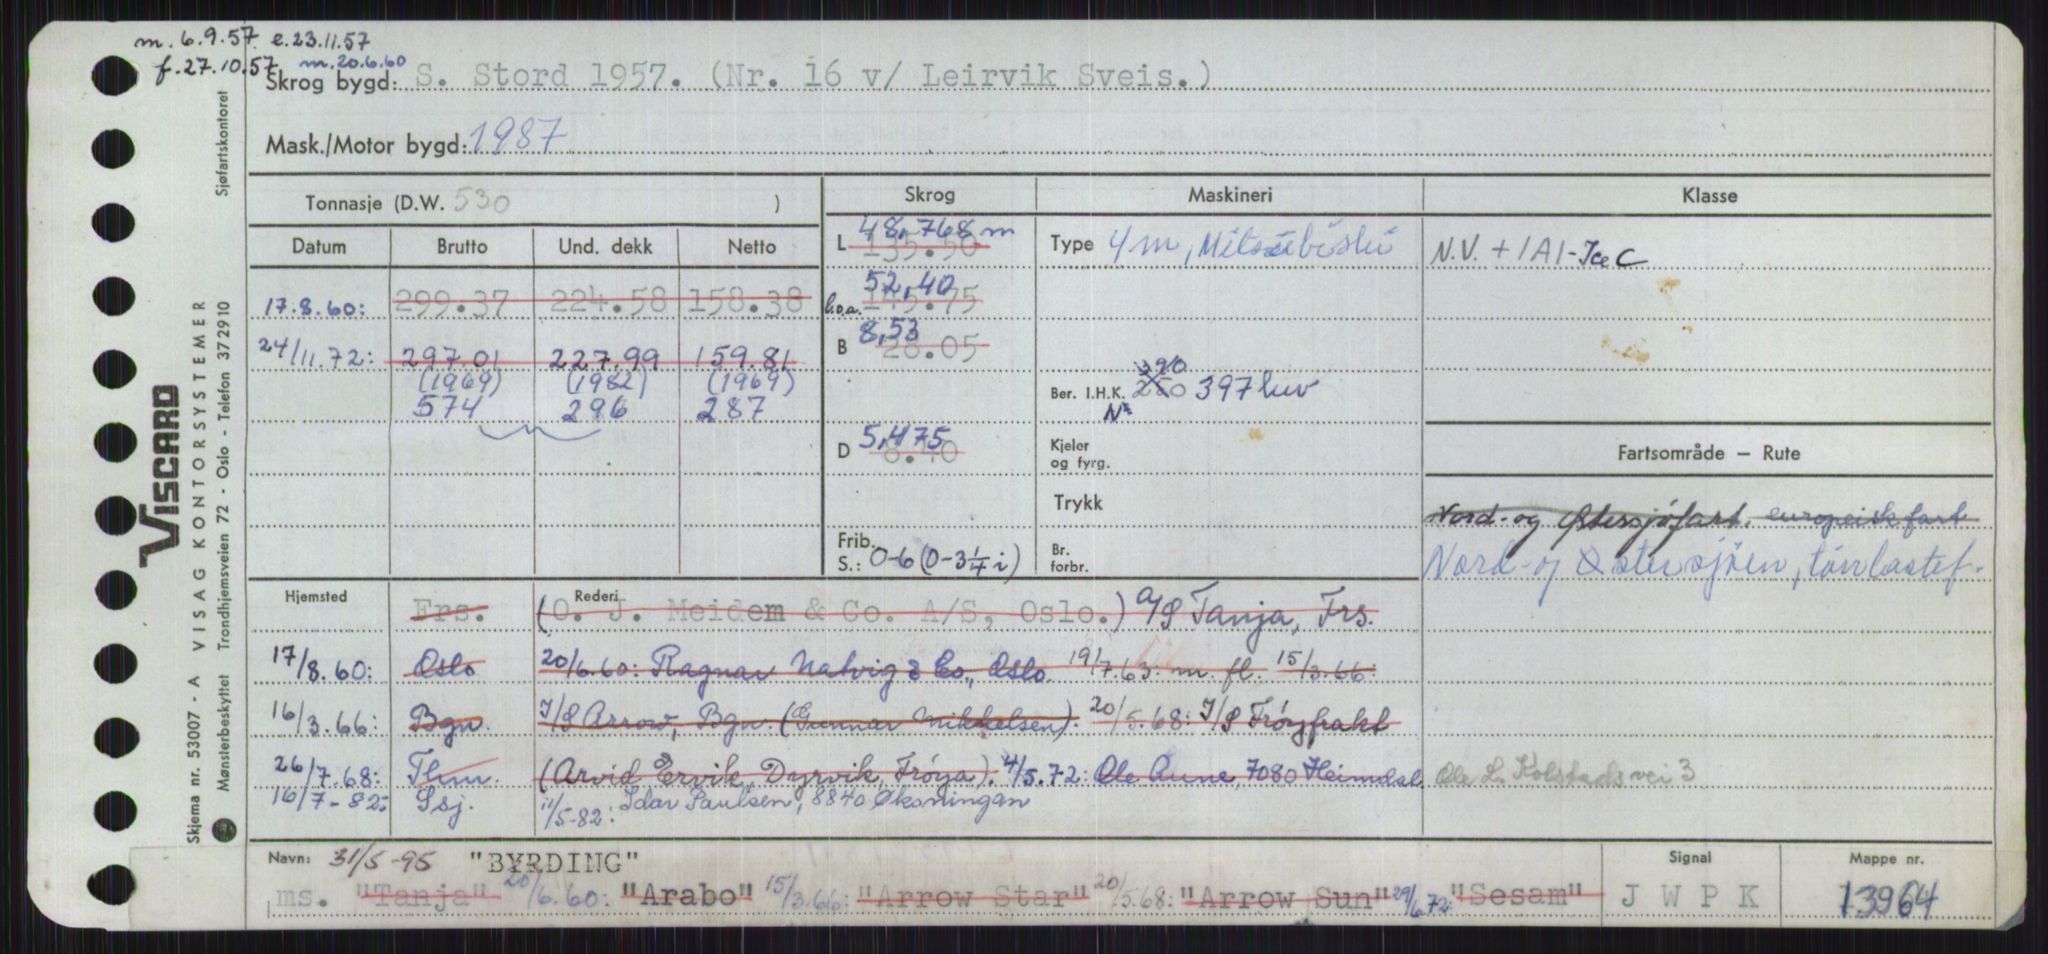 m. 6.9.57 e.23.11.57
f.27.10.57 m.20.6.60
Skrog bygd: S. Stord 1957. (Nr. 16 v/ Leirvik Sveis.)
Mask./Motor bygd: 1987
Tonnasje (D.W. 530 ) Skrog Maskineri Klasse
Datum Brutto Und. dekk Netto
L 48,768 m 135.50 Type 4m, Mitsubishi N.V. + 1A1-Ice C
17.8.60: 299.37 224.58 158.38 l.o.a. 52,40 145.75
24/11.72: 297.01 227.99 159.81 B 8,53 28.05
(1969) (1982) (1969) Ber. I.H.K. 390 397 kw
574 296 287
D 5,475 8.40 Kjeler og fyrg. Fartsområde – Rute
Trykk Nord- og Østersjøfart. europeisk fart
Frib. S.: 0-6 (0-3¼ i) Br. forbr. Nord- og Østersjöen, törrlastef.
Hjemsted Frs. Rederi (O. J. Meidem & Co. A/S, Oslo.) A/S Tanja, Frs.
17/8.60: Oslo 20/6.60: Ragnar Natvig & Co., Oslo 19/7.63: m. fl. 15/3.66:
16/3.66: Bgn. I/S Arrow, Bgn. (Gunnar Mikkelsen). 20/5.68: I/S Frøyfrakt
26/7.68: Thm. (Arvid Ervik, Dyrvik, Frøya). 4/5.72: Ole Aune, 7080 Heimdal Ole L. Kolstads vei 3
16/7-82: Ssj. 11/5-82: Idar Paulsen, 8840 Øksningan
Navn: 31/5-95 "BYRDING" Signal Mappe nr.
ms. "Tanja" 20/6.60: "Arabo" 15/3.66: "Arrow Star" 20/5.68: "Arrow Sun" 29/6.72: "Sesam" J W P K 13964
VISCARD
Skjema nr. 53007 - A VISAG KONTORSYSTEMER
Mønsterbeskyttet Trondhjemsveien 72 - Oslo - Telefon 37 29 10 Sjøfartskontoret